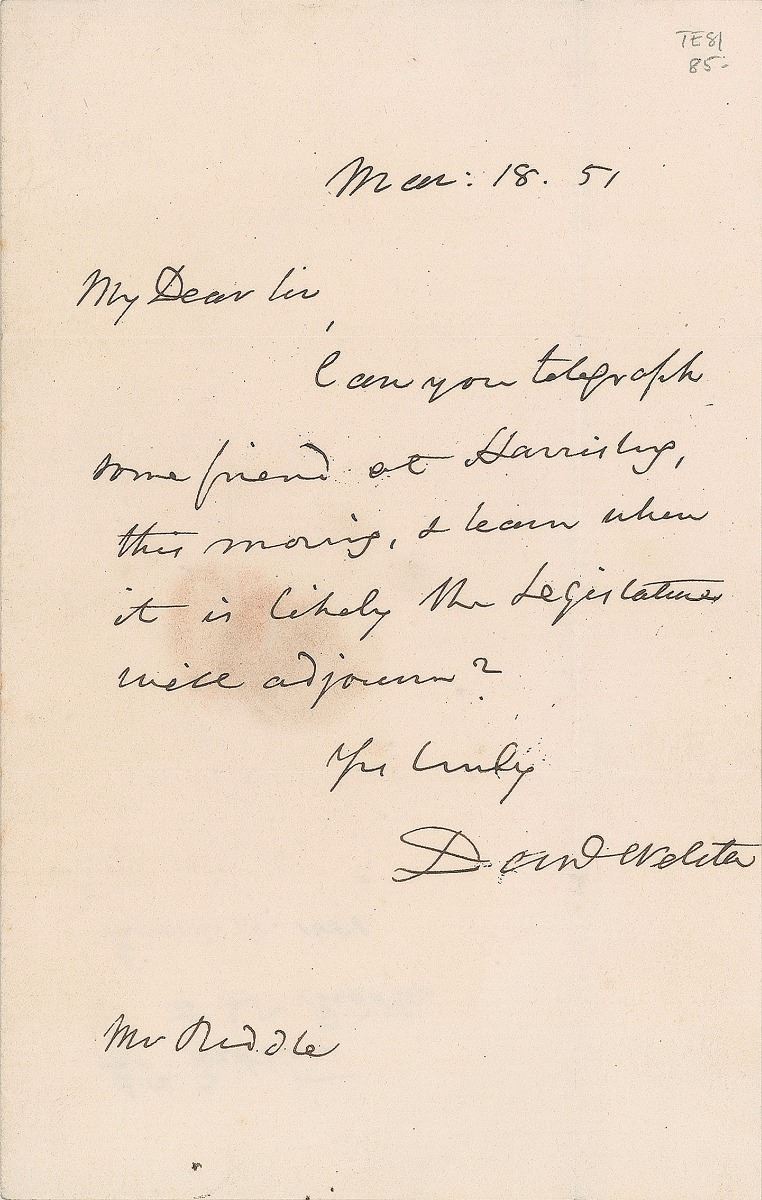 TE81
85-
Mar: 18. 51
My Dear Sir,
Can you telegraph
some friend at Harrisburg,
this morning, & learn when
it is likely the Legislature
will adjourn?
Yrs truly
Danl Webster
Mr Riddle